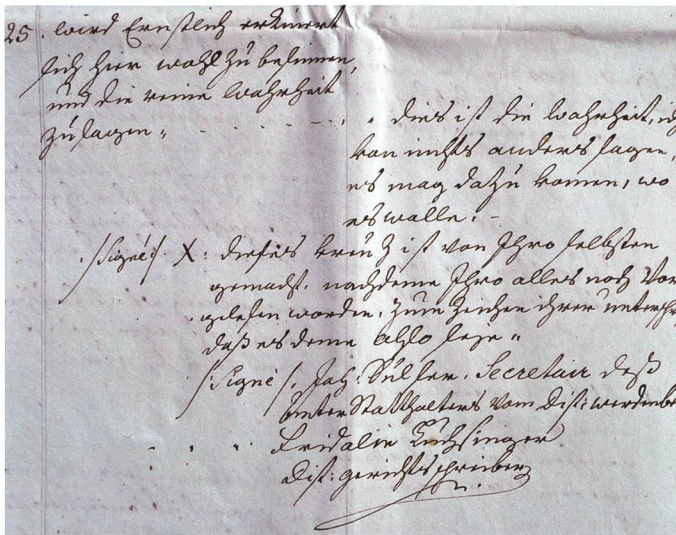 25. wird Ernstlich erinnert
sich hier wohl zu besinnen,
und die reine wahrheit
zu sagen„
„ dies ist die wahrheit, ich
kan nichts anders sagen,
es mag dazu komen, wo
es wolle. –
/Signé/ X: dieses kreuz ist von Ihro selbsten
gemacht. nachdeme Ihro alles noch Vor
gelesen worden. zum Zeichen ihrer unterschr
daß es deme also seje„
/Signé/. Joh: Secretair deß
Unter Statthalters vom Dist: werdenbe
Fridolin Luchsinger
Dist: gerichtschreiber